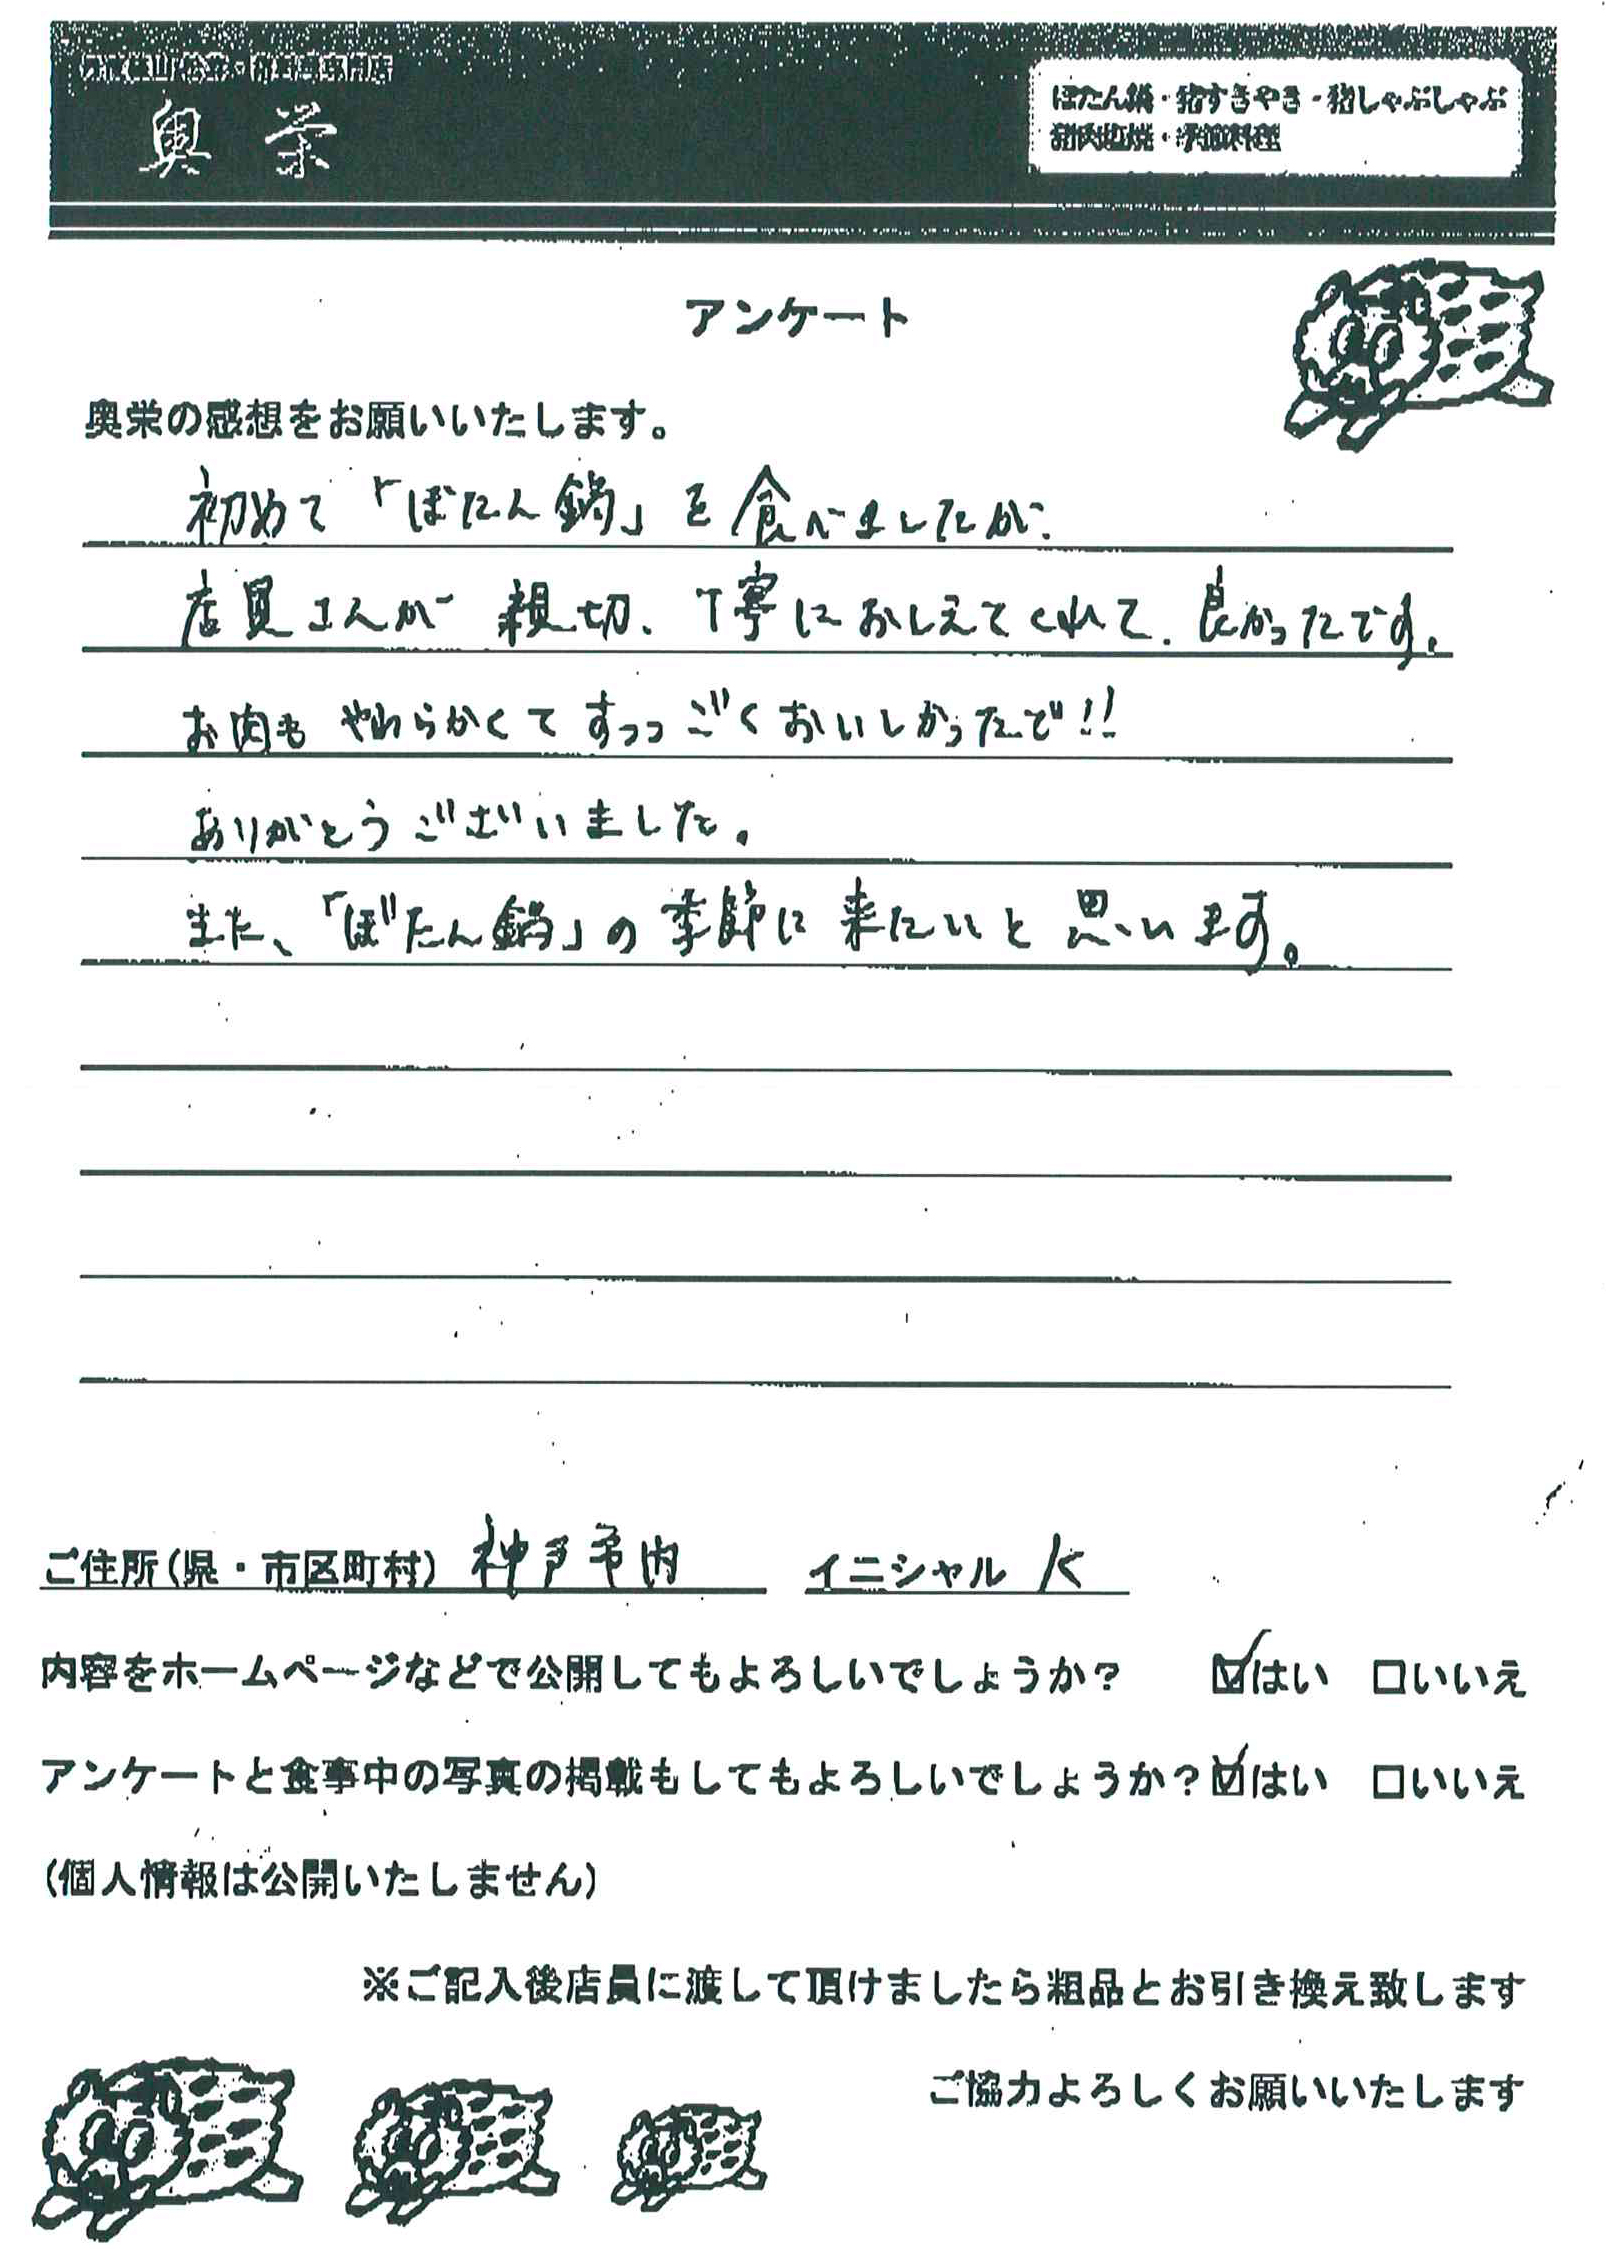 奥栄
ぼたん鍋・猪すきやき・猪しゃぶしゃぶ
猪肉塩焼・季節料理
アンケート
奥栄の感想をお願いいたします。
初めて「ぼたん鍋」を食べましたが、
店員さんが 親切、丁寧におしえてくれて、良かったです。
お肉も やわらかくて すっっごくおいしかったで!!
ありがとうございました。
また、「ぼたん鍋」の季節に来たいと思います。
ご住所(県・市区町村) 神戸市内 イニシャル K
内容をホームページなどで公開してもよろしいでしょうか? ☑はい □いいえ
アンケートと食事中の写真の掲載もしてもよろしいでしょうか?☑はい □いいえ
(個人情報は公開いたしません)
※ご記入後店員に渡して頂けましたら粗品とお引き換え致します
ご協力よろしくお願いいたします